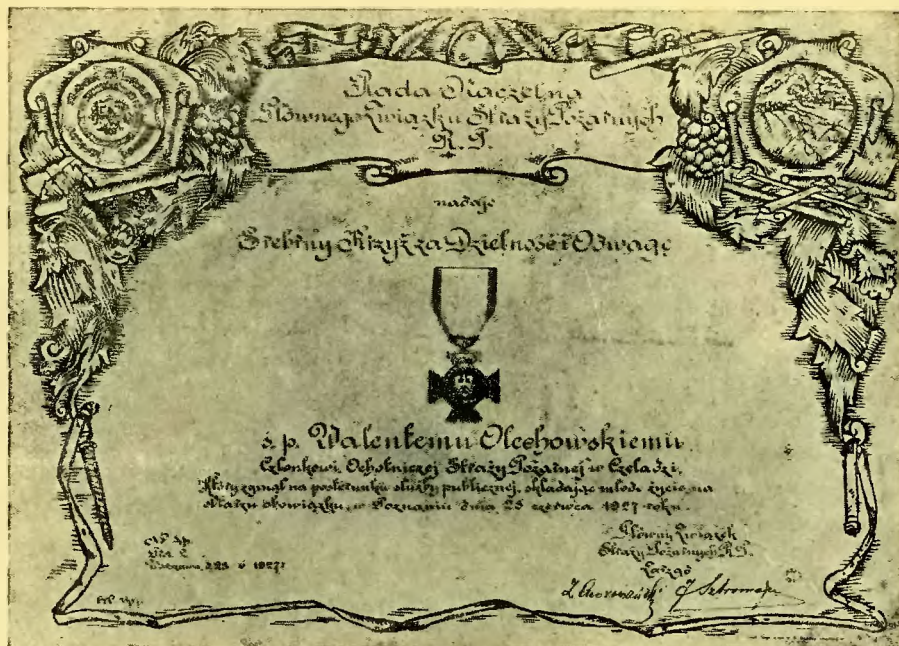 Rada Naczelna
Głównego Związku Straży Pożarnych
R. P.
nadaje
Srebrny Krzyż za Dzielność i Odwagę
ś. p. Walentemu Olechowskiemu
Członkowi Ochotniczej Straży Pożarnej w Czeladzi,
który zginął na posterunku służby publicznej, składając młode życie na
ołtarzu obowiązku, w Poznaniu dnia 25 czerwca 1927 roku.
Główny Związek
Straży Pożarnych R. P.
Zarząd